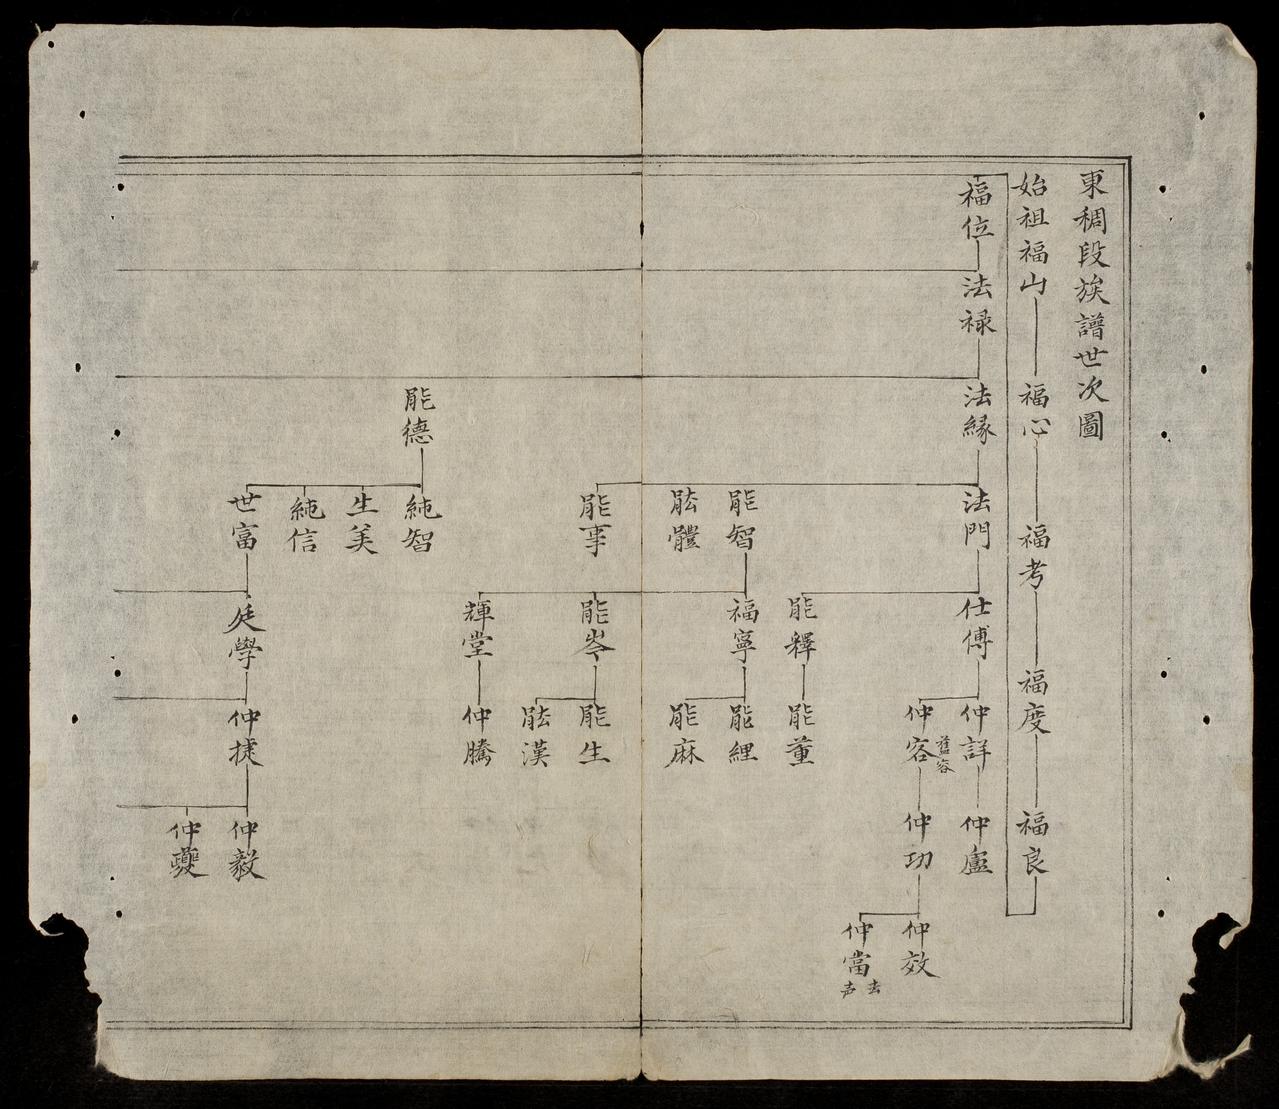 東稠段族譜世次圖
始祖福山 福心 福考 福度 福良
福位 法禄 法緣 法門 仕傅 仲詳 仲盧
仲容 仲功 仲效
仲當 去声
能釋 能董
能智 福寧 能經
能體 能麻
能事 能岑 能生
能漢
輝堂 仲騰
能德 純智
生美
純信
世富 廷學 仲捷 仲毅
仲夔